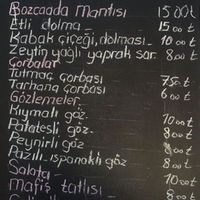 Bozcaada Mantısı 15.00 ₺
Etli dolma - 15.00 ₺
Kabak çiçeği dolması - 10.00 ₺
Zeytin yağlı yaprak sar. 8.00 ₺
Çorbalar
Tutmaç çorbası 7.50 ₺
Tarhana çorbası 6.00 ₺
Gözlemeler
Kıymalı göz. 10.00 ₺
Patatesli göz. - 8.00 ₺
Peynirli göz 8.00 ₺
Pazılı ıspanaklı göz 8.00 ₺
Salata - 10.00 ₺
Mafiş tatlısı - 8.00 ₺